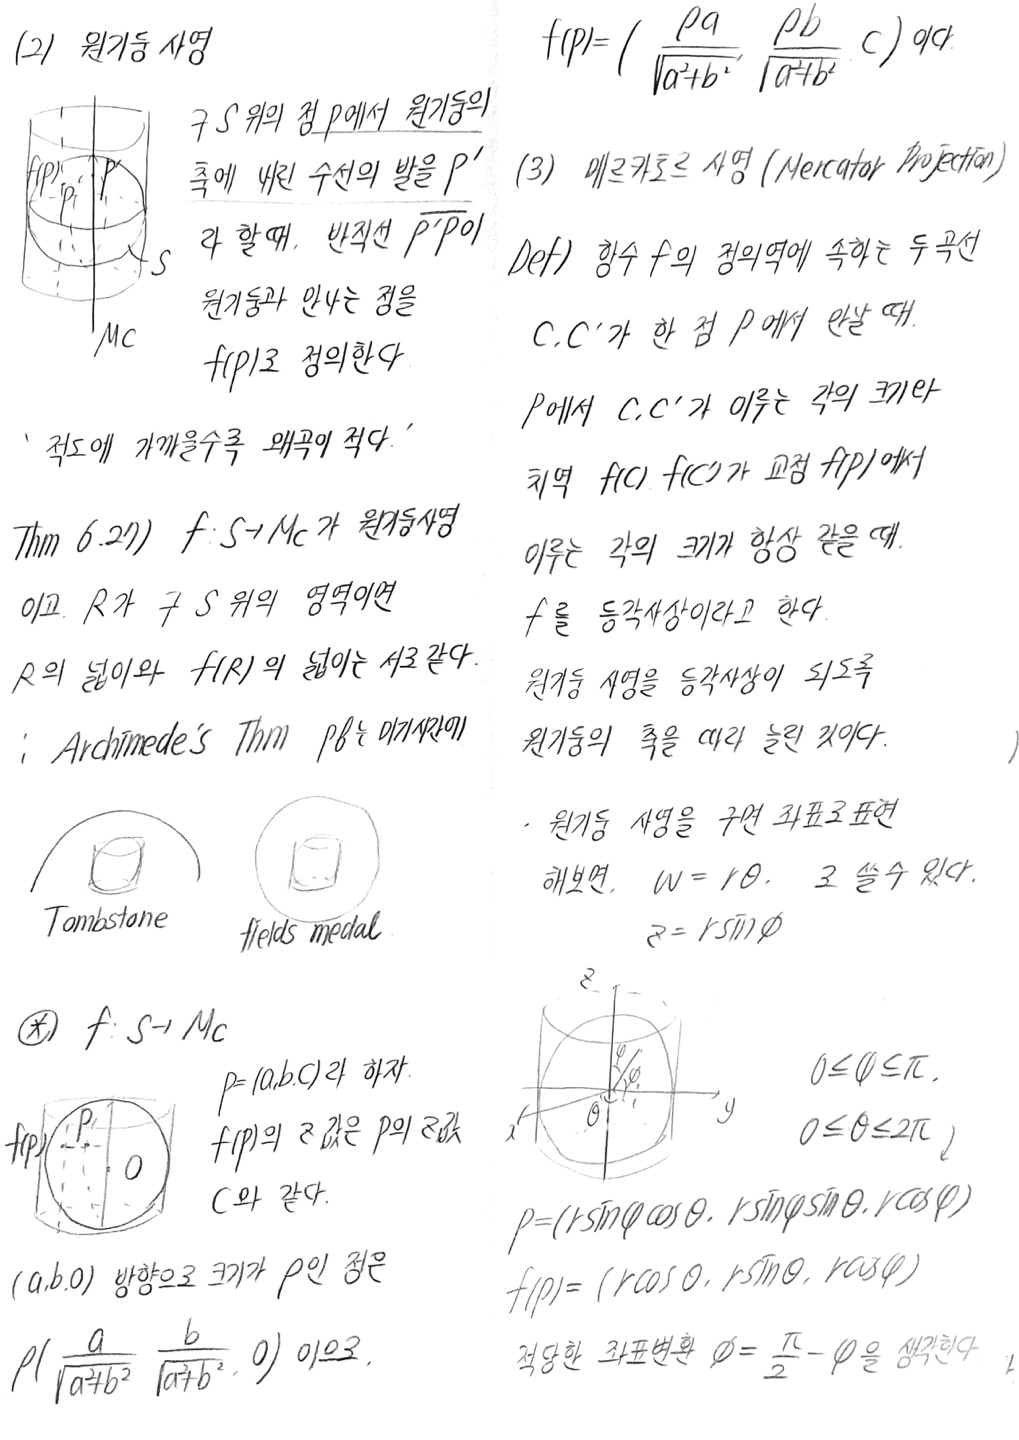 (2) 원기둥 사영
구 S 위의 점 p에서 원기둥의
축에 내린 수선의 발을 p'
라 할때, 반직선 p'p이
원기둥과 만나는 점을
f(p)로 정의한다.
f(p) p p'
S
Mc
'적도에 가까울수록 왜곡이 적다.'
Thm 6.27) f: S→Mc가 원기둥사영
이고 R가 구 S 위의 영역이면
R의 넓이와 f(R)의 넓이는 서로같다.
; Archimede's Thm pf는 미기시간에
Tombstone fields medal
(*) f: S→Mc
p=(a,b.c)라 하자.
f(p)의 z값은 p의 z값
c와 같다.
f(p) p
O
(a,b.0) 방향으로 크기가 ρ인 점은
ρ( a/√a²+b² b/√a²+b², 0) 이므로,
f(p)= ( ρa/√a²+b² ρb/√a²+b² c) 이다.
(3) 메르카토르 사영 (Mercator Projection)
Def) 함수 f의 정의역에 속하는 두곡선
C,C'가 한 점 p에서 만날 때,
p에서 C,C'가 이루는 각의 크기와
치역 f(C) f(C')가 교점 f(p)에서
이루는 각의 크기가 항상 같을 때,
f를 등각사상이라고 한다.
원기둥 사영을 등각사상이 되도록
원기둥의 축을 따라 늘린 것이다.
· 원기둥 사영을 구면 좌표로 표현
해보면, w = rθ. 로 쓸 수 있다.
z = r sin ϕ
z
φ ϕ
θ
x y
0≤φ≤π,
0≤θ≤2π
p=(r sinφ cosθ, r sinφ sinθ, r cosφ)
f(p)= (r cosθ, r sinθ, r cosφ)
적당한 좌표변환 ϕ = π/2 - φ을 생각한다.